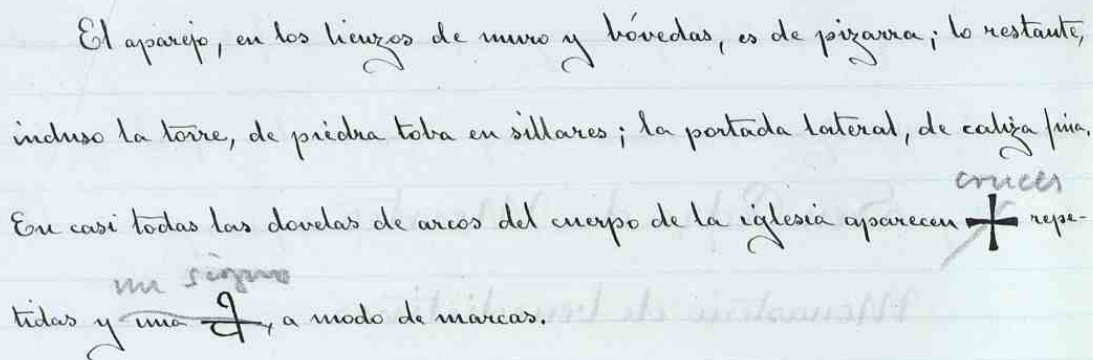 El aparejo, en los lienzos de muro y bóvedas, es de pizarra; lo restante,
incluso la torre, de piedra toba en sillares; la portada lateral, de caliza fina.
cruces
En casi todas las dovelas de arcos del cuerpo de la iglesia aparecen repe-
un signo
tidas y una , a modo de marcas.
Monasterio de benedictinos